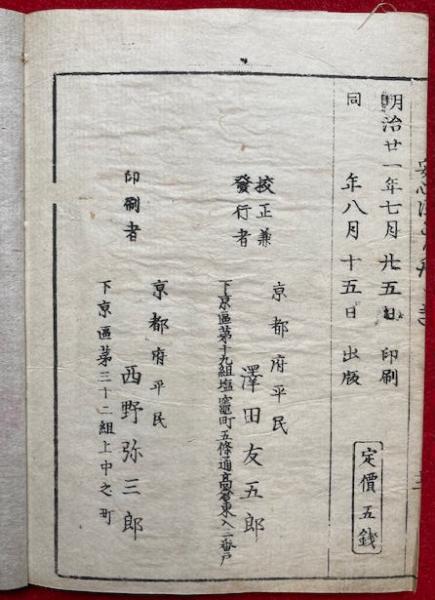 明治廿一年七月廿五日印刷
同年八月十五日出版
定價五錢
校正兼
發行者
京都府平民
澤田友五郎
下京區第十九組塩竈町五條通高倉東入二番戸
印刷者
京都府平民
西野弥三郎
下京區第三十二組上中之町